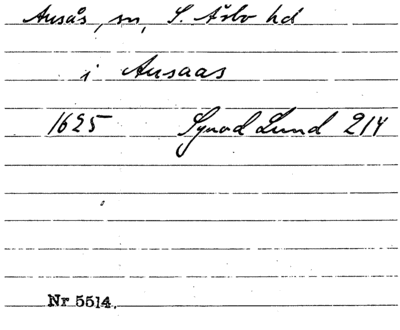 Ausås, sn, S. Åsbo hd
i Ausaas
1625 Synod Lund 214
Nr 5514.